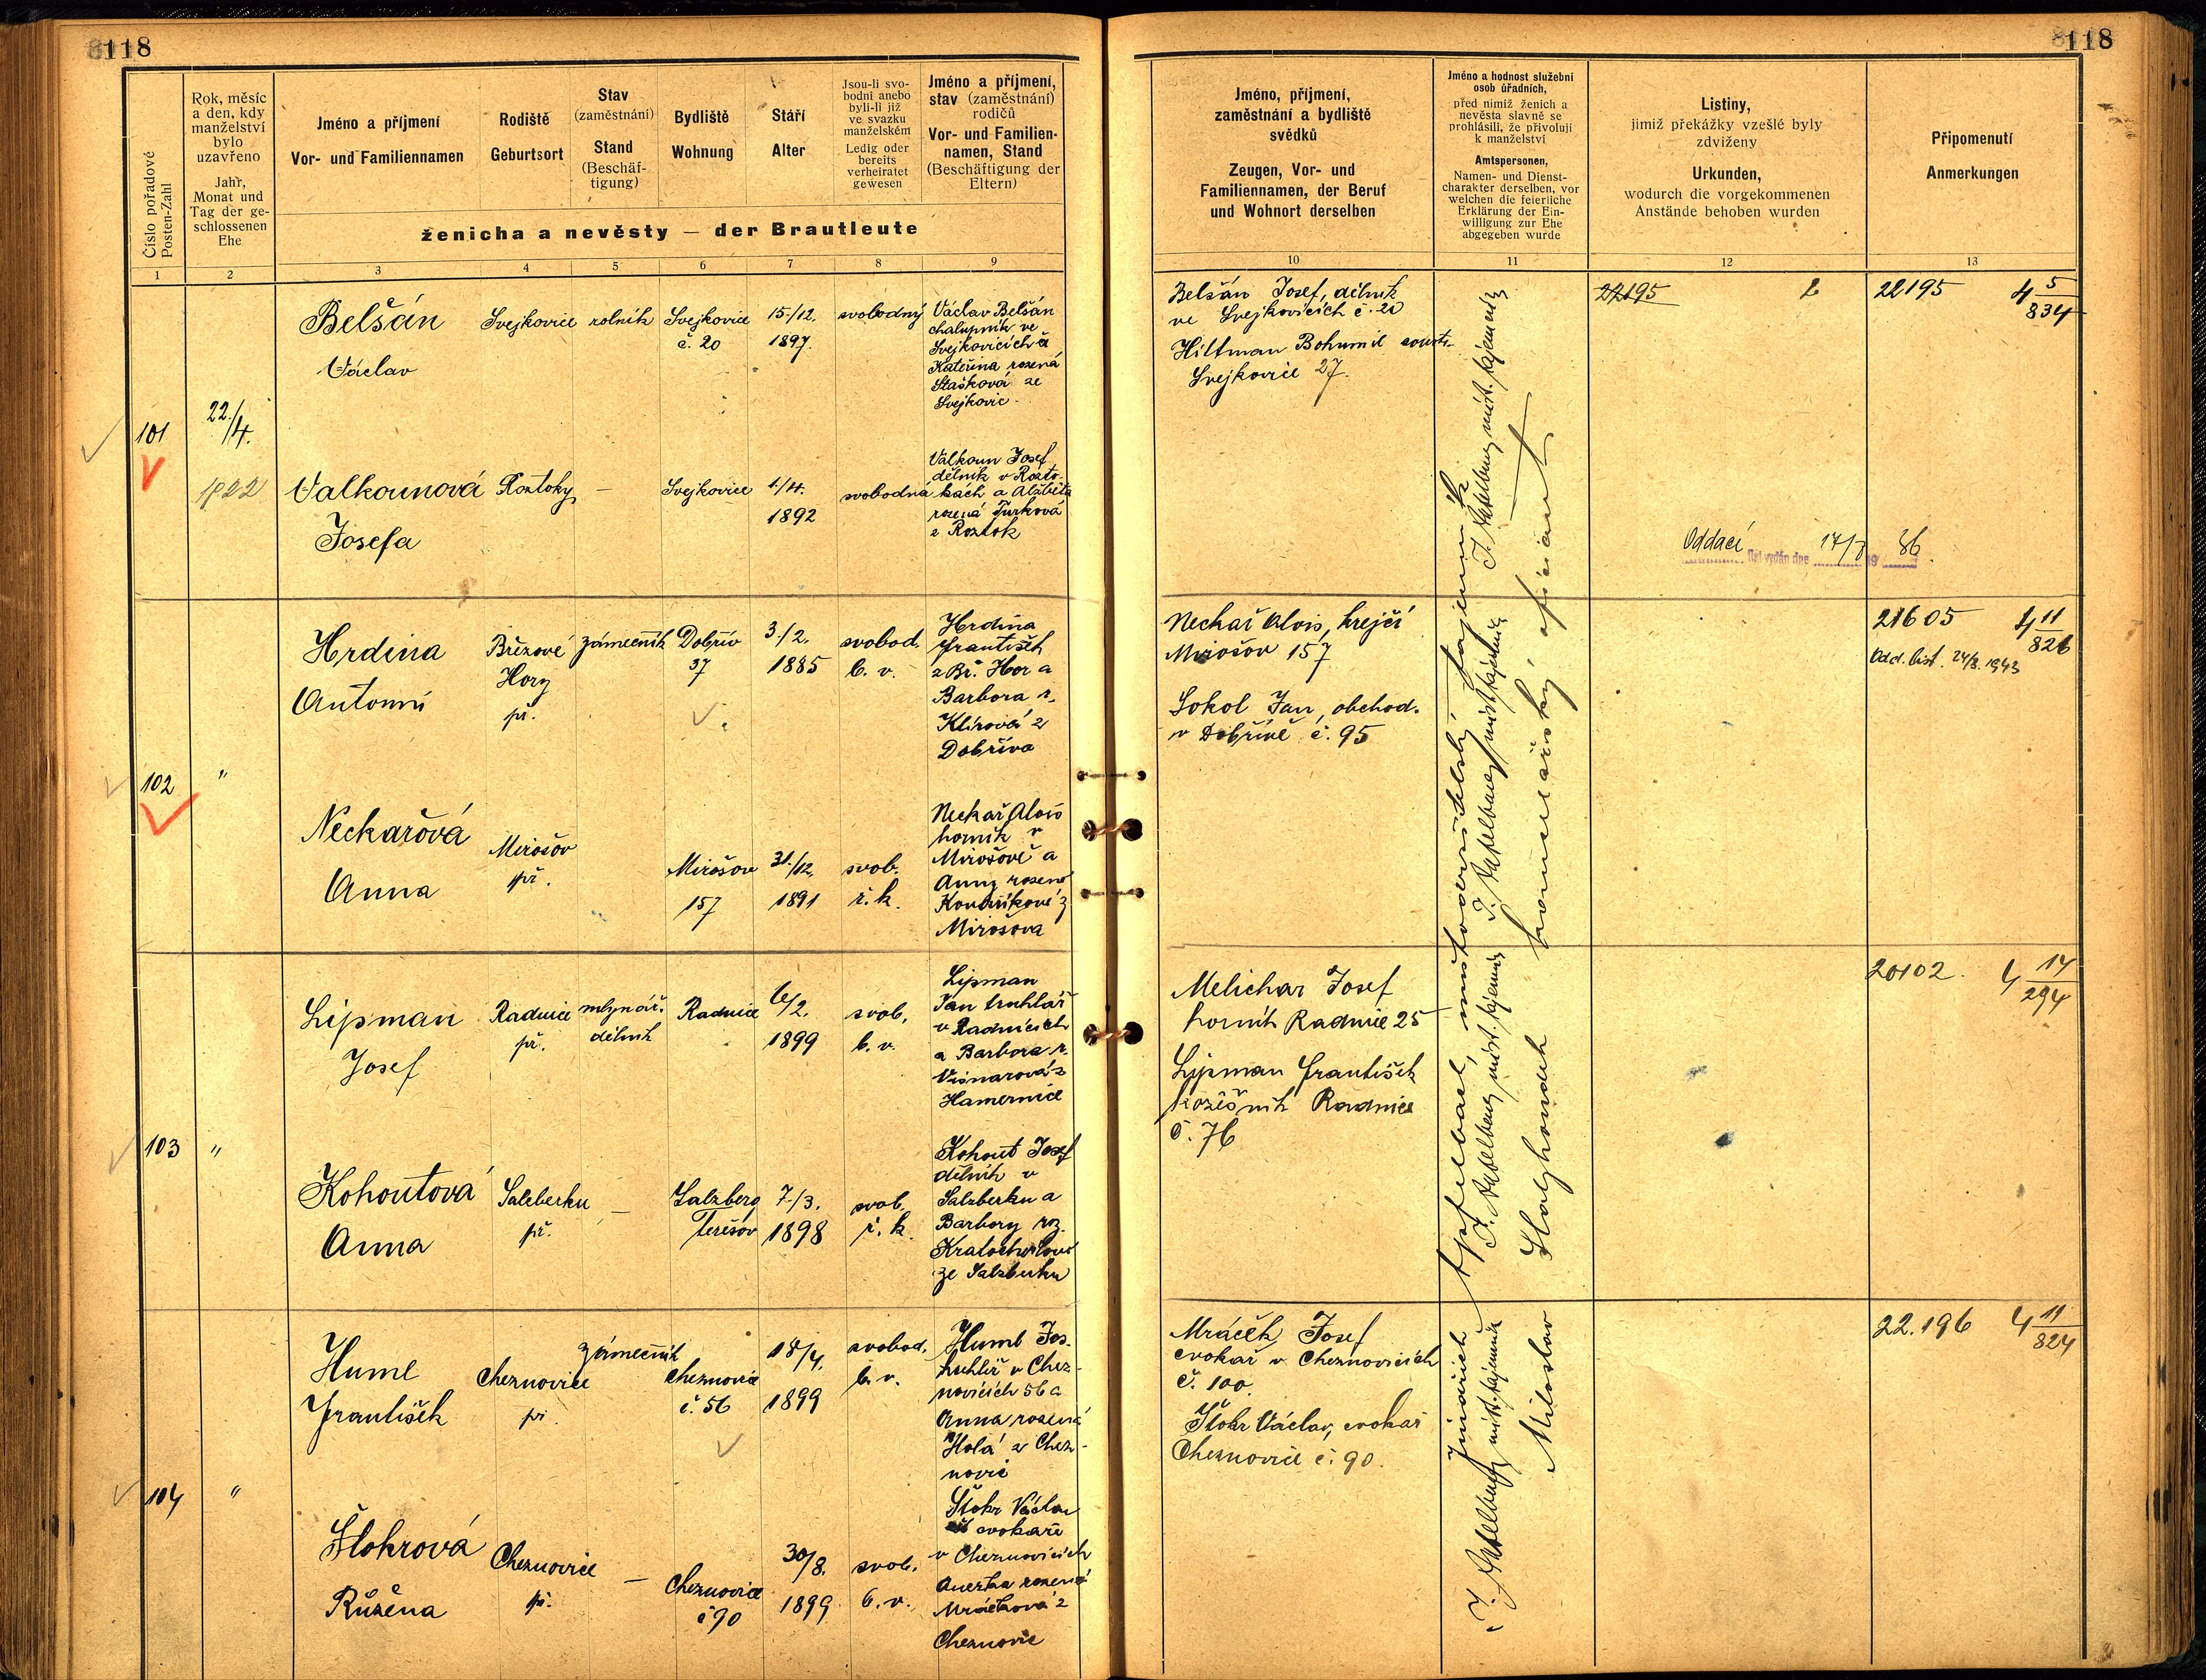 118
118
Číslo pořadové
Posten-Zahl
Rok, měsíc
a den, kdy
manželství
bylo
uzavřeno
Jahr,
Monat und
Tag der ge-
schlossenen
Ehe
Jméno a příjmení
Vor- und Familiennamen
Rodiště
Geburtsort
Stav
(zaměstnání)
Stand
(Beschäf-
tigung)
Bydliště
Wohnung
Stáří
Alter
Jsou-li svo-
bodni anebo
byli-li již
ve svazku
manželském
Ledig oder
bereits
verheiratet
gewesen
Jméno a příjmení,
stav (zaměstnání)
rodičů
Vor- und Familien-
namen, Stand
(Beschäftigung der
Eltern)
ženicha a nevěsty — der Brautleute
Jméno, příjmení,
zaměstnání a bydliště
svědků
Zeugen, Vor- und
Familiennamen, der Beruf
und Wohnort derselben
Jméno a hodnost služební
osob úřadních,
před nimiž ženich a
nevěsta slavně se
prohlásili, že přivolují
k manželství
Amtspersonen,
Namen- und Dienst-
charakter derselben, vor
welchen die feierliche
Erklärung der Ein-
willigung zur Ehe
abgegeben wurde
Listiny,
jimiž překážky vzešlé byly
zdviženy
Urkunden,
wodurch die vorgekommenen
Anstände behoben wurden
Připomenutí
Anmerkungen
1 2 3 4 5 6 7 8 9 10 11 12 13
101
22./4.
1922
Belšán
Václav
Svejkovice
rolník
Svejkovice
č. 20
15./12.
1897.
svobodný
Václav Belšán
chalupník ve
Svejkovicích a
Kateřina rozená
Stašková ze
Svejkovic.
Valkounová
Josefa
Roztoky
—
Svejkovice
1./4.
1892
svobodná
Valkoun Josef
dělník v Rozto-
kách a Alžběta
rozená Turková
z Roztok
Belšán Josef, dělník
ve Svejkovicích č. 20
Hiltman Bohumil
Svejkovice 27.
22195
22195
4 5/834
Oddací list vydán dne 17/8 1986.
102
"
Hrdina
Antonín
Březové
Hory
př.
zámečník
Dobřív
37
3./2.
1885
svobod.
b. v.
Hrdina
František
z Bř. Hor a
Barbora r.
Klírová z
Dobříva
Neckařová
Anna
Mirošov
př.
Mirošov
157
31./12.
1891
svob.
ř. k.
Neckař Alois
horník v
Mirošově a
Anny rozené
z
Mirošova
Neckař Alois, krejčí
Mirošov 157
Sokol Jan, obchod.
v Dobřívě č. 95
21605
4 11/826
Odd. list. 24/8. 1943
103
"
Lipman
Josef
Radnice
př.
mlynář.
dělník
Radnice
6/2.
1899
svob.
b. v.
Lipman
Jan truhlář
v Radnicích
a Barbora r.
Visnarová z
Hamernice
Kohoutová
Anna
Salzberku
př.
—
Salzberg
Terešov
7./3.
1898
svob.
ř. k.
Kohout Josef
dělník v
Salzberku a
Barbory roz.
Kratochvílové
ze Salzberku
Melichar Josef
horník Radnice 25
Lipman František
kožešník Radnice
č. 76
20102.
4 14/294
104
"
Huml
František
Cheznovice
př.
zámečník
Cheznovice
č. 56
18/4.
1899
svobod.
b. v.
Huml Jos.
truhlář v Chez-
novicích 56 a
Anna rozená
Holá z Chez-
novic
Štokrová
Růžena
Cheznovice
př.
—
Cheznovice
č 90
30/8.
1899
svob.
b. v.
Štokr Václav
cvokaře
v Cheznovicích
Anežka rozená
Mráčková z
Cheznovic
Mráček Josef
cvokař v Cheznovicích
č. 100.
Štokr Václav, cvokař
Cheznovice č. 90.
22.196
4 11/824
Jindřich Apfelbach, místodržitelský tajemník
Miloslav Hayhondek kancelářský oficiant